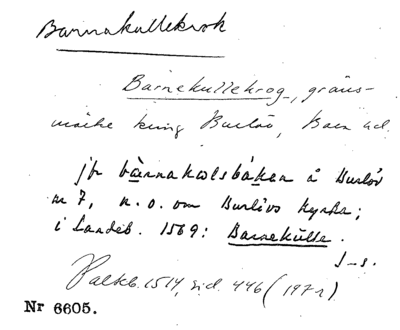 Barnakullekrok
Barnekullekrog, gräns-
märke kring Burlöv,
jfr bànnakolsbáken å Burlöv
nr 7, n.o. om Burlövs kyrka;
i Landeb. 1569: Barnekulle.
J-s.
Palkb. 1514, sid. 446 (197 r)
Nr 6605.